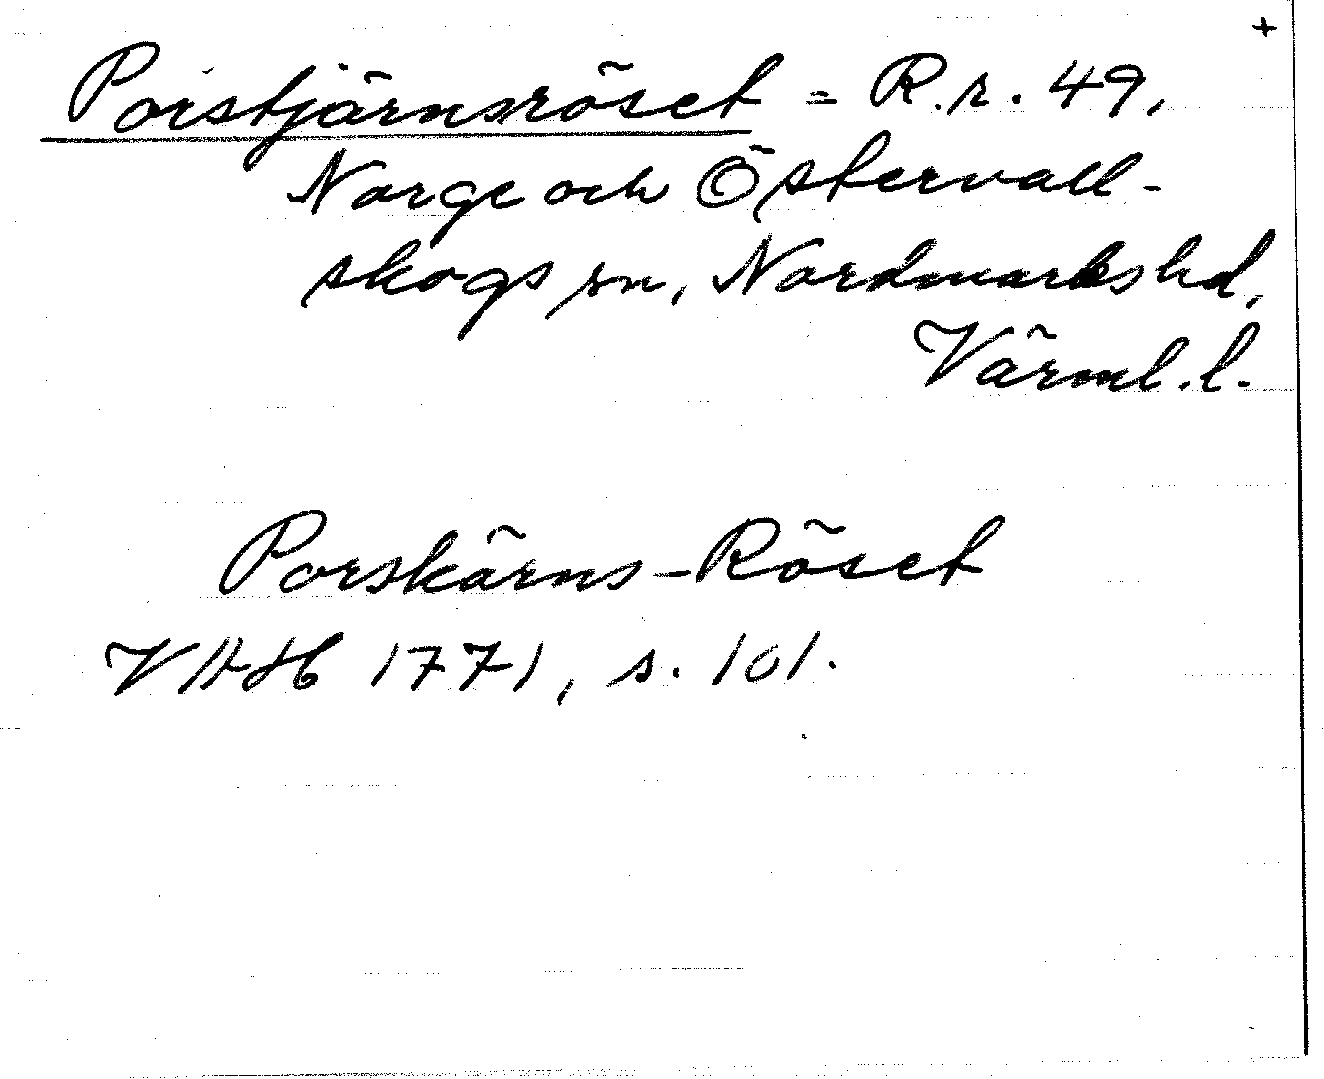 +
Porstjärnsröset = R.r. 49,
Norge och Östervall-
skogs sn, Nordmarks hd,
Värml. l.
Porskärns-Röset
VHH 1771, s. 101.